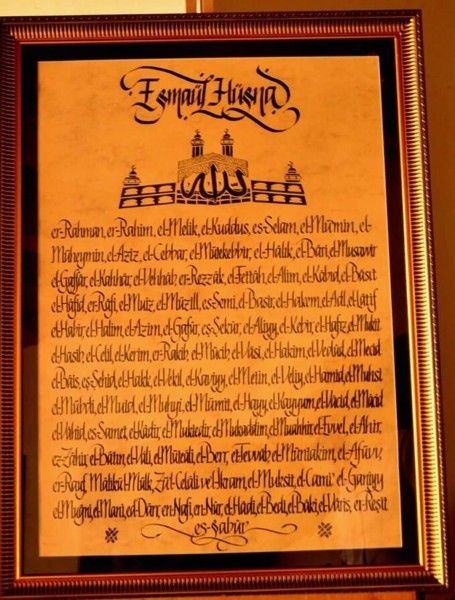 Esmaül Hüsna
الله
er-Rahman, er-Rahim, el-Melik, el-Kuddus, es-Selam, el-Mü'min, el-
Müheymin, el-Aziz, el-Cebbar, el-Mütekebbir, el-Halik, el-Bari, el-Musavvir
el-Gaffar, el-Kahhar, el-Vehhab, er-Rezzak, el-Fettah, el-Alim, el-Kabıd, el-Basıt
el-Hafıd, er-Rafi, el-Muiz, el-Müzill, es-Semi, el-Basir, el-Hakem, el-Adl, el-Latif
el-Habir, el-Halim, el-Azim, el-Gafur, eş-Şekür, el-Aliyy, el-Kebir, el-Hafiz, el-Mukit
el-Hasib, el-Celil, el-Kerim, er-Rakib, el-Mücib, el-Vasi, el-Hakim, el-Vedud, el-Mecid
el-Bais, eş-Şehid, el-Hakk, el-Vekil, el-Kaviyy, el-Metin, el-Veliy, el-Hamid, el-Muhsi
el-Mübdi, el-Muid, el-Muhyi, el-Mümit, el-Hayy, el-Kayyum, el-Vacid, el-Macid
el-Vahid, es-Samet, el-Kadir, el-Muktedir, el-Mukaddim, el-Muahhir, el-Evvel, el-Ahir,
ez-Zahir, el-Batın, el-Vali, el-Müteali, el-Berr, et-Tevvab, el-Müntakim, el-Afüvv,
er-Rauf, Malikü'l-Mülk, Zü'l-Celali ve'l-İkram, el-Muksit, el-Cami' el-Ganiyy
el-Muğni, el-Mani, ed-Darr, en-Nafi, en-Nur, el-Hadi, el-Bedi, el-Baki, el-Varis, er-Reşit
es-Sabur